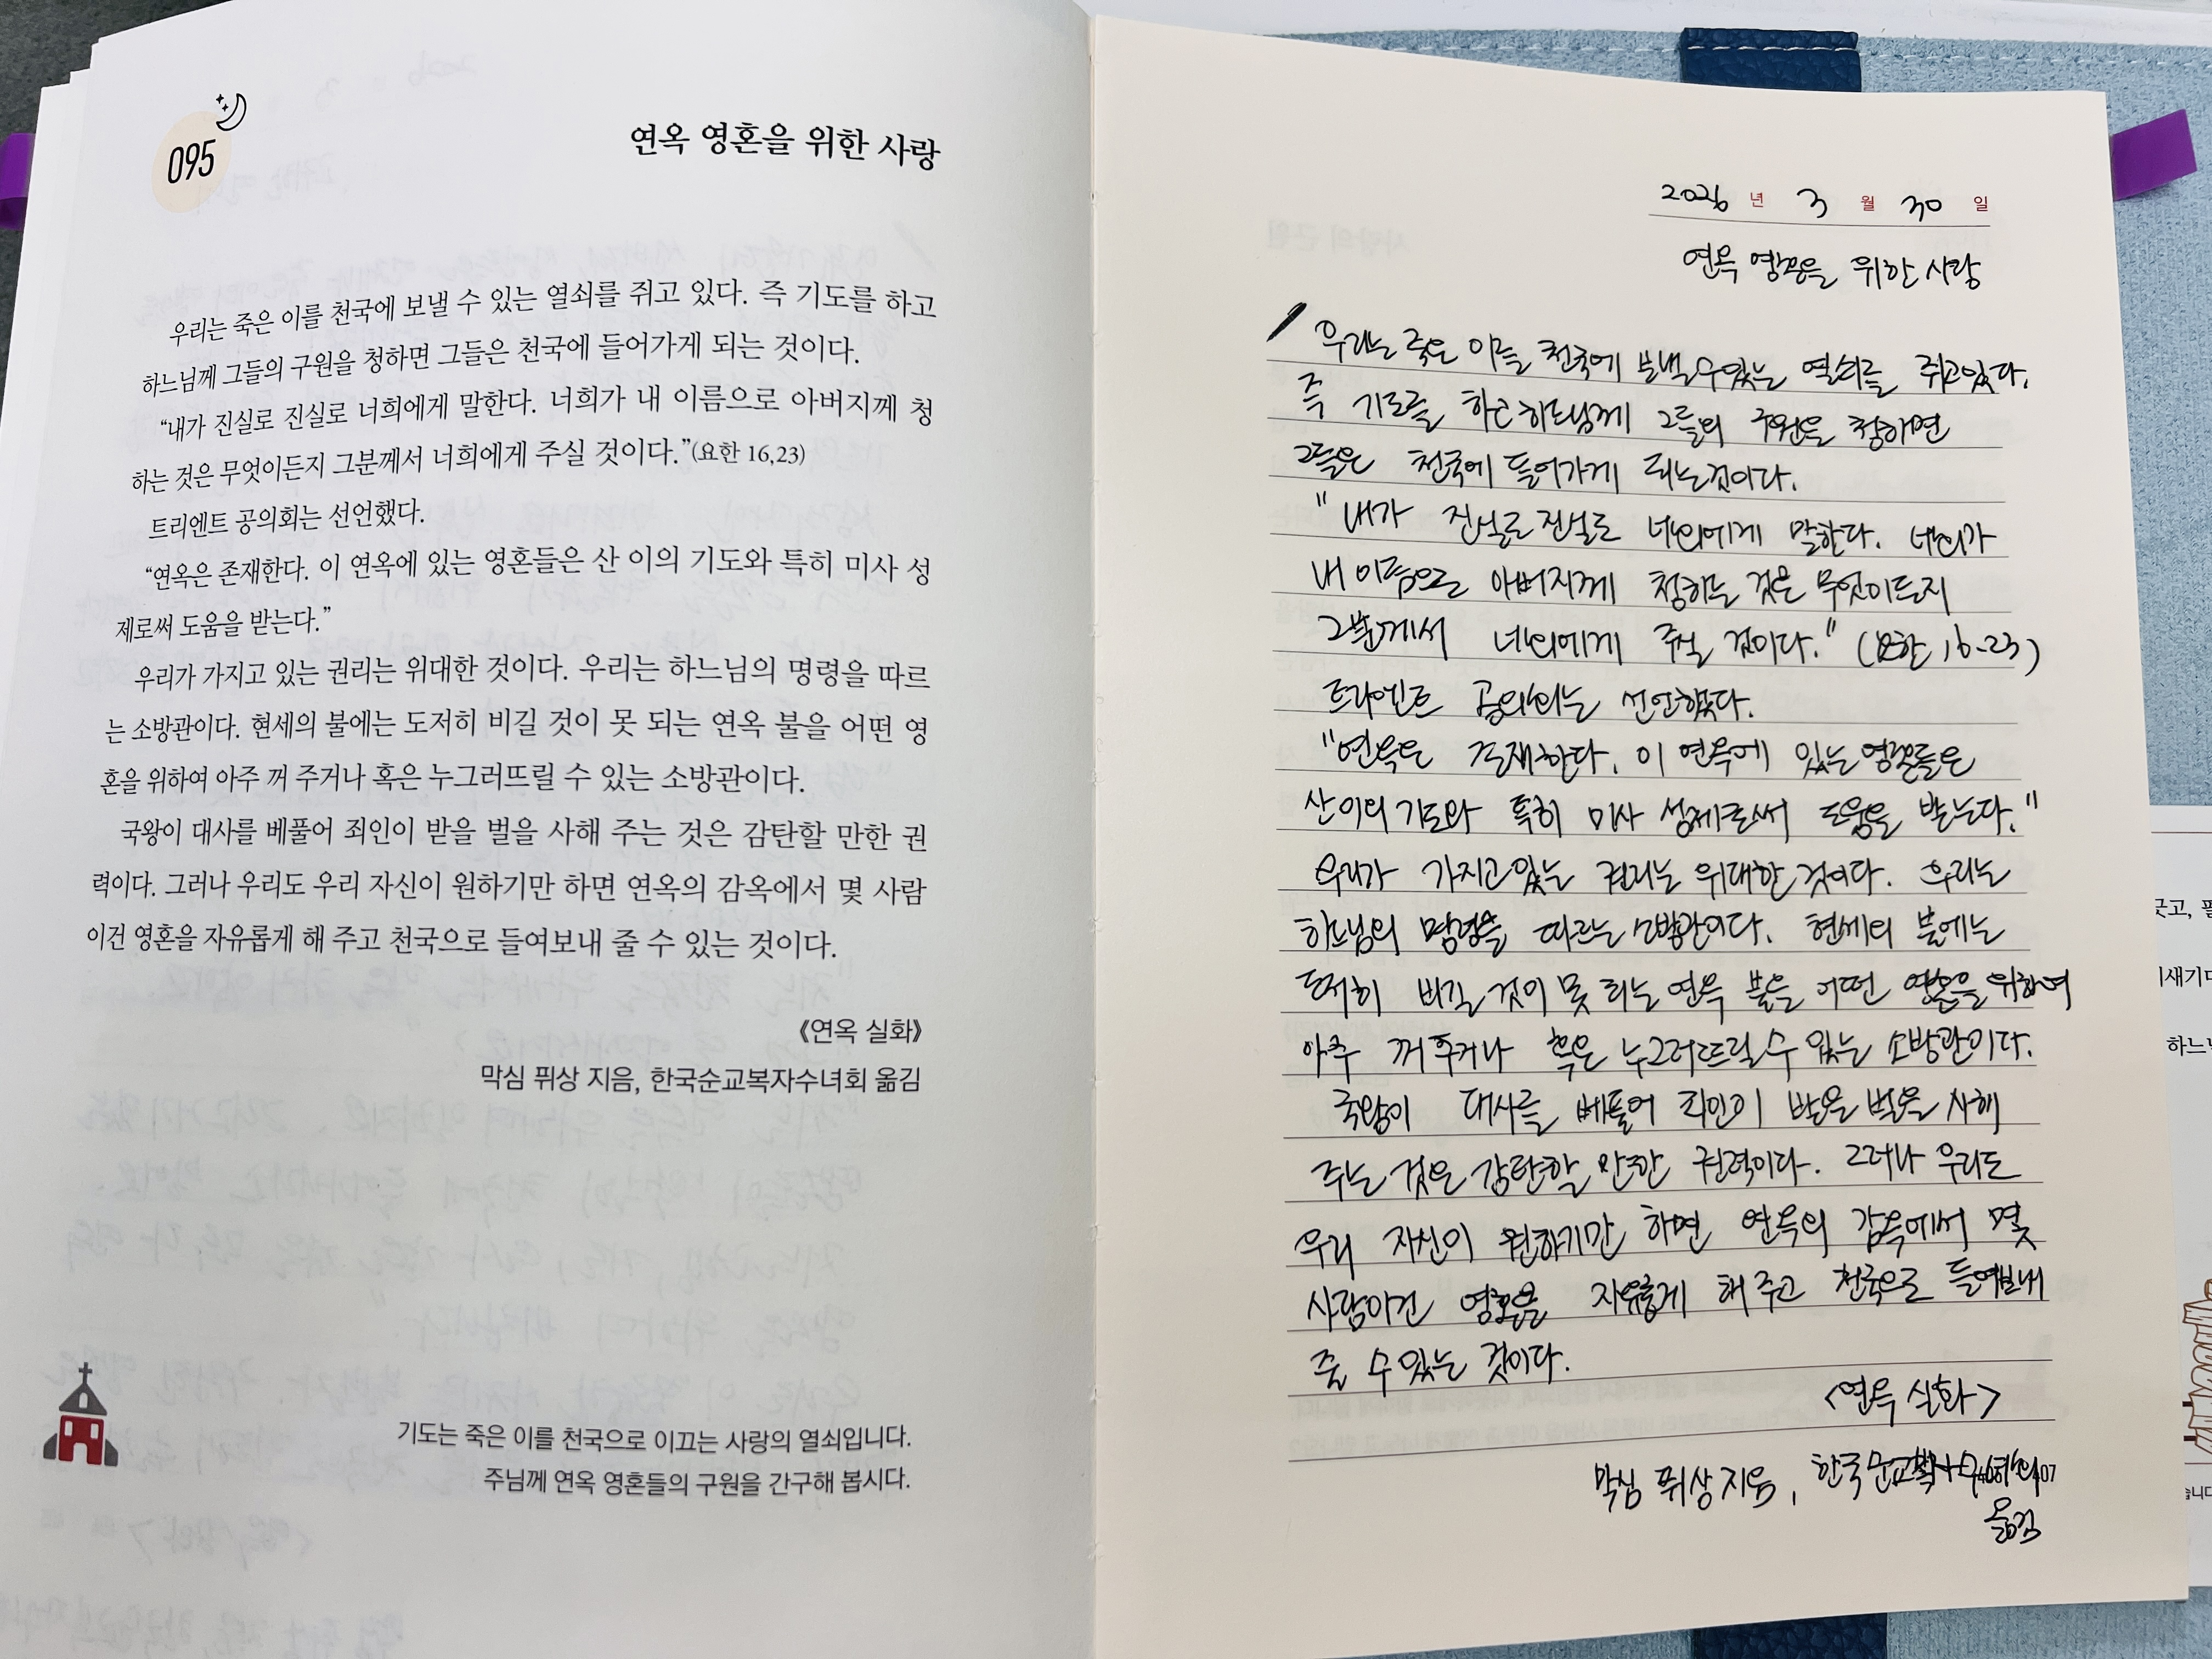 095
연옥 영혼을 위한 사랑
우리는 죽은 이를 천국에 보낼 수 있는 열쇠를 쥐고 있다. 즉 기도를 하고
하느님께 그들의 구원을 청하면 그들은 천국에 들어가게 되는 것이다.
“내가 진실로 진실로 너희에게 말한다. 너희가 내 이름으로 아버지께 청
하는 것은 무엇이든지 그분께서 너희에게 주실 것이다.”(요한 16,23)
트리엔트 공의회는 선언했다.
“연옥은 존재한다. 이 연옥에 있는 영혼들은 산 이의 기도와 특히 미사 성
제로써 도움을 받는다.”
우리가 가지고 있는 권리는 위대한 것이다. 우리는 하느님의 명령을 따르
는 소방관이다. 현세의 불에는 도저히 비길 것이 못 되는 연옥 불을 어떤 영
혼을 위하여 아주 꺼 주거나 혹은 누그러뜨릴 수 있는 소방관이다.
국왕이 대사를 베풀어 죄인이 받을 벌을 사해 주는 것은 감탄할 만한 권
력이다. 그러나 우리도 우리 자신이 원하기만 하면 연옥의 감옥에서 몇 사람
이건 영혼을 자유롭게 해 주고 천국으로 들여보내 줄 수 있는 것이다.
《연옥 실화》
막심 퓌상 지음, 한국순교복자수녀회 옮김
기도는 죽은 이를 천국으로 이끄는 사랑의 열쇠입니다.
주님께 연옥 영혼들의 구원을 간구해 봅시다.
2026 년 3 월 30 일
연옥 영혼을 위한 사랑
우리는 죽은 이를 천국에 보낼 수 있는 열쇠를 쥐고 있다.
즉 기도를 하고 하느님께 그들의 구원을 청하면
그들은 천국에 들어가게 되는 것이다.
"내가 진실로 진실로 너희에게 말한다. 너희가
내 이름으로 아버지께 청하는 것은 무엇이든지
그분께서 너희에게 주실 것이다." (요한 16-23)
트리엔트 공의회는 선언했다.
"연옥은 존재한다. 이 연옥에 있는 영혼들은
산 이의 기도와 특히 미사 성제로써 도움을 받는다."
우리가 가지고 있는 권리는 위대한 것이다. 우리는
하느님의 명령을 따르는 소방관이다. 현세의 불에는
도저히 비길 것이 못 되는 연옥 불을 어떤 영혼을 위하여
아주 꺼 주거나 혹은 누그러뜨릴 수 있는 소방관이다.
국왕이 대사를 베풀어 죄인이 받을 벌을 사해
주는 것은 감탄할 만한 권력이다. 그러나 우리도
우리 자신이 원하기만 하면 연옥의 감옥에서 몇
사람이건 영혼을 자유롭게 해 주고 천국으로 들여보내
줄 수 있는 것이다.
<연옥 실화>
막심 퓌상 지음, 한국순교복자수녀회
옮김
하느